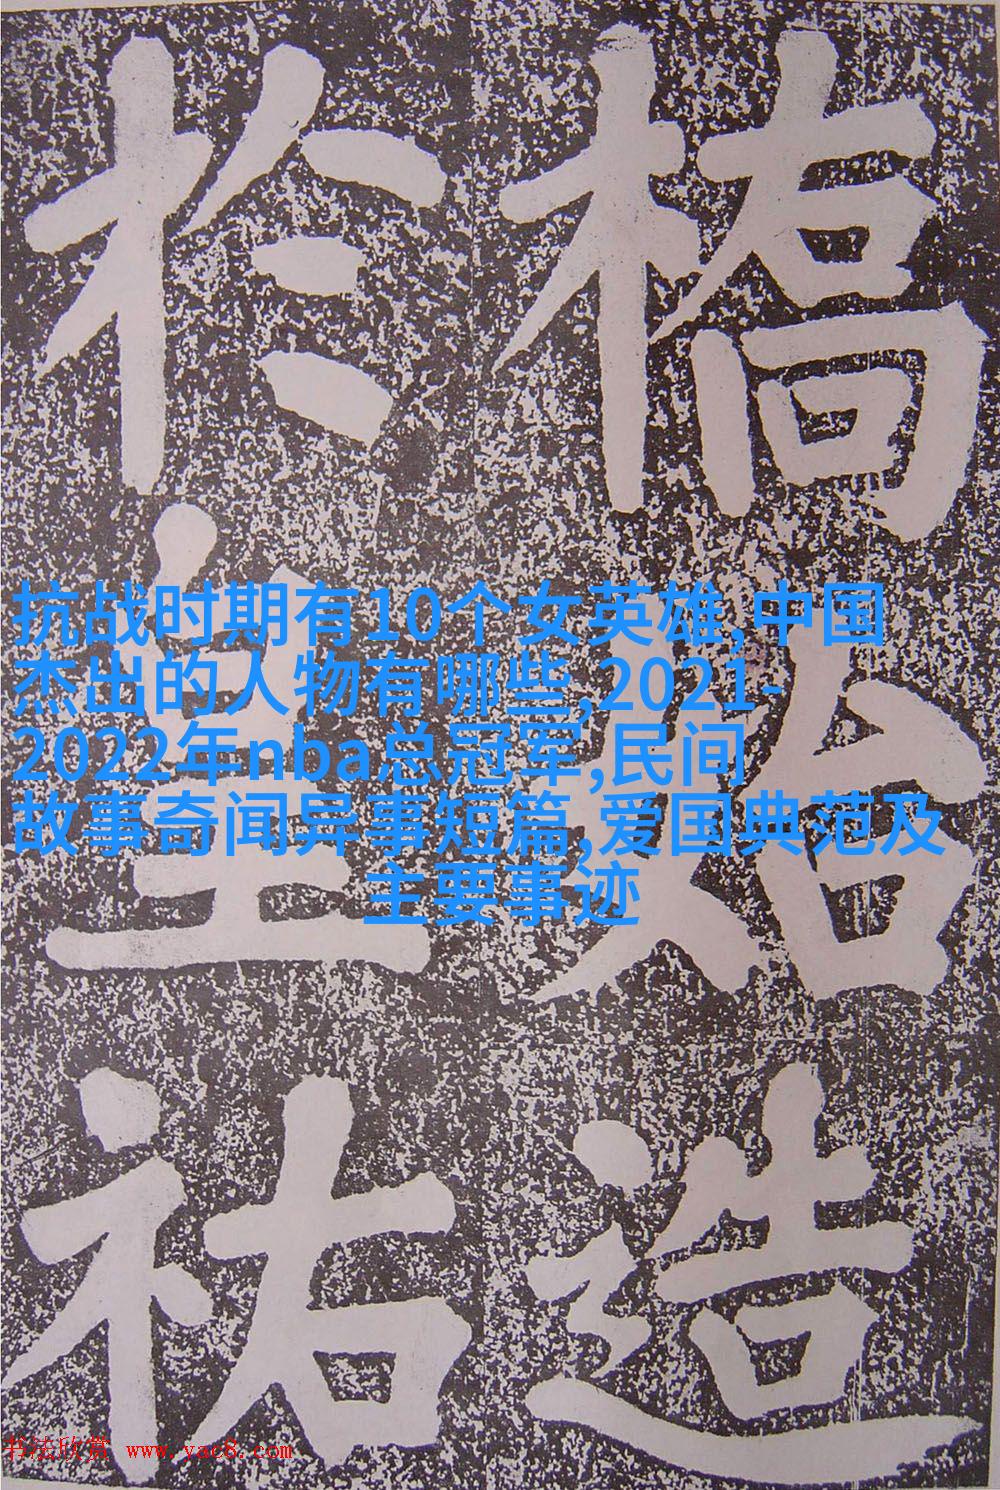 橋始造
於皇祐
抗战时期有10个女英雄,中国
杰出的人物有哪些,2021-
2022年nba总冠军,民间
故事奇闻异事短篇,爱国典范及
主要事迹
书法欣赏 www.yac8.com